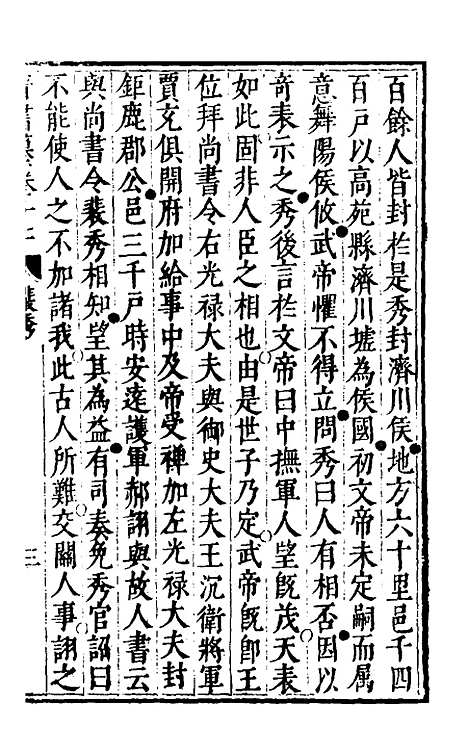 百餘人皆封於是秀封濟川侯地方六十里邑千四
百戸以高苑縣濟川墟為侯國初文帝未定嗣而属
意舞陽侯攸武帝懼不得立問秀曰人有相否因以
奇表示之秀後言於文帝曰中撫軍人望旣茂天表
如此固非人臣之相也由是世子乃定武帝旣即王
位拜尚書令右光禄大夫與御史大夫王沉衛將軍
賈充俱開府加給事中及帝受禅加左光禄大夫封
鉅鹿郡公邑三千戸時安逺護軍郝詡與故人書云
與尚書令裴秀相知望其為益有司奏免秀官詔曰
不能使人之不加諸我此古人所難交關人事詡之
裴秀
三